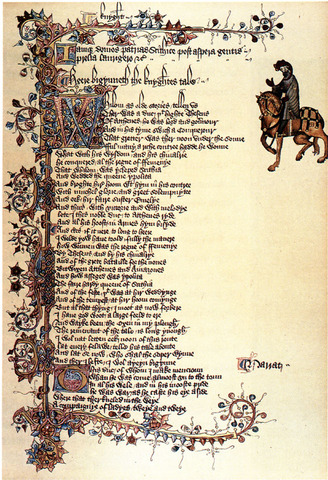 knyght
Iamque domos patrias Scithice post aspera gentis
prelia laurigero &c
Heere bigynneth the knyghtes tale
Whilom as olde stories tellen us
Ther was a duc þt highte Theseus
Of Atthenes he was lord and gouernour
And in his tyme swich a Conquerour
That gretter was ther noon vnder the sonne
fful many a riche contree hadde he wonne
What with his wysdom and his chiualrie
He conquered al the regne of ffemenye
That whilom was ycleped Scithia
And weddede the queene ypolita
And broghte hir hoom wt hym in his contree
With muchel glorie and greet solempnytee
And eek hir faire suster Emelye
And thus with victorie and with melodye
Lete I this noble duc to Atthenes ryde
And al his hoost in armes hym bisyde
And certes if it nere to long to heere
I wolde yow haue toold fully the manere
How wonnen was the regne of ffemenye
By Theseus and by his chiualrye
And of the grete bataille for the nones
Bitwixen Atthenes and Amazones
And how asseged was ypolita
The faire hardy queene of Scithia
And of the feste þt was at hir weddynge
And of the tempest at hir hoom comynge
But al that thyng I moot as now forbere
I haue god woot a large feeld to ere
And wayke been the oxen in my plough
The remenant of the tale is long ynough
I wol nat letten eek noon of this route
Lat euery felawe telle his tale aboute
And lat se now who shal the soper wynne
And ther I lefte I wol ayeyn bigynne
This duc of whom I make mencioun
Whan he was come almoost to the toun
In al his wele and in his mooste pride
He was war as he caste his eye aside
Where that ther kneled in the weye
A compaignye of ladyes tweye and tweye
Narrat